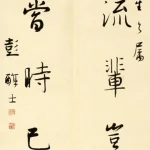 生之属
流輩豈
當時已
彭醇士